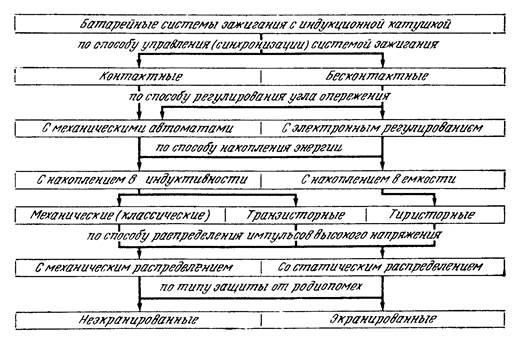 Батарейные системы зажигания с индукционной катушкой
по способу управления (синхронизации) системой зажигания
Контактные Бесконтактные
по способу регулирования угла опережения
С механическими автоматами С электронным регулированием
по способу накопления энергии
С накоплением в индуктивности С накоплением в емкости
Механические (классические) Транзисторные Тиристорные
по способу распределения импульсов высокого напряжения
С механическим распределением Со статическим распределением
по типу защиты от радиопомех
Неэкранированные Экранированные